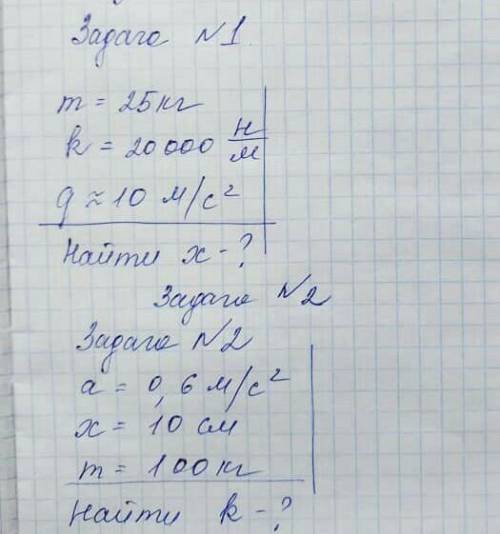 Задача №1.
m = 25 кг
k = 20 000 Н/м
g ≈ 10 м/с²
Найти x - ?
Задача №2
Задача №2
a = 0,6 м/с²
x = 10 см
m = 100 кг
Найти k - ?